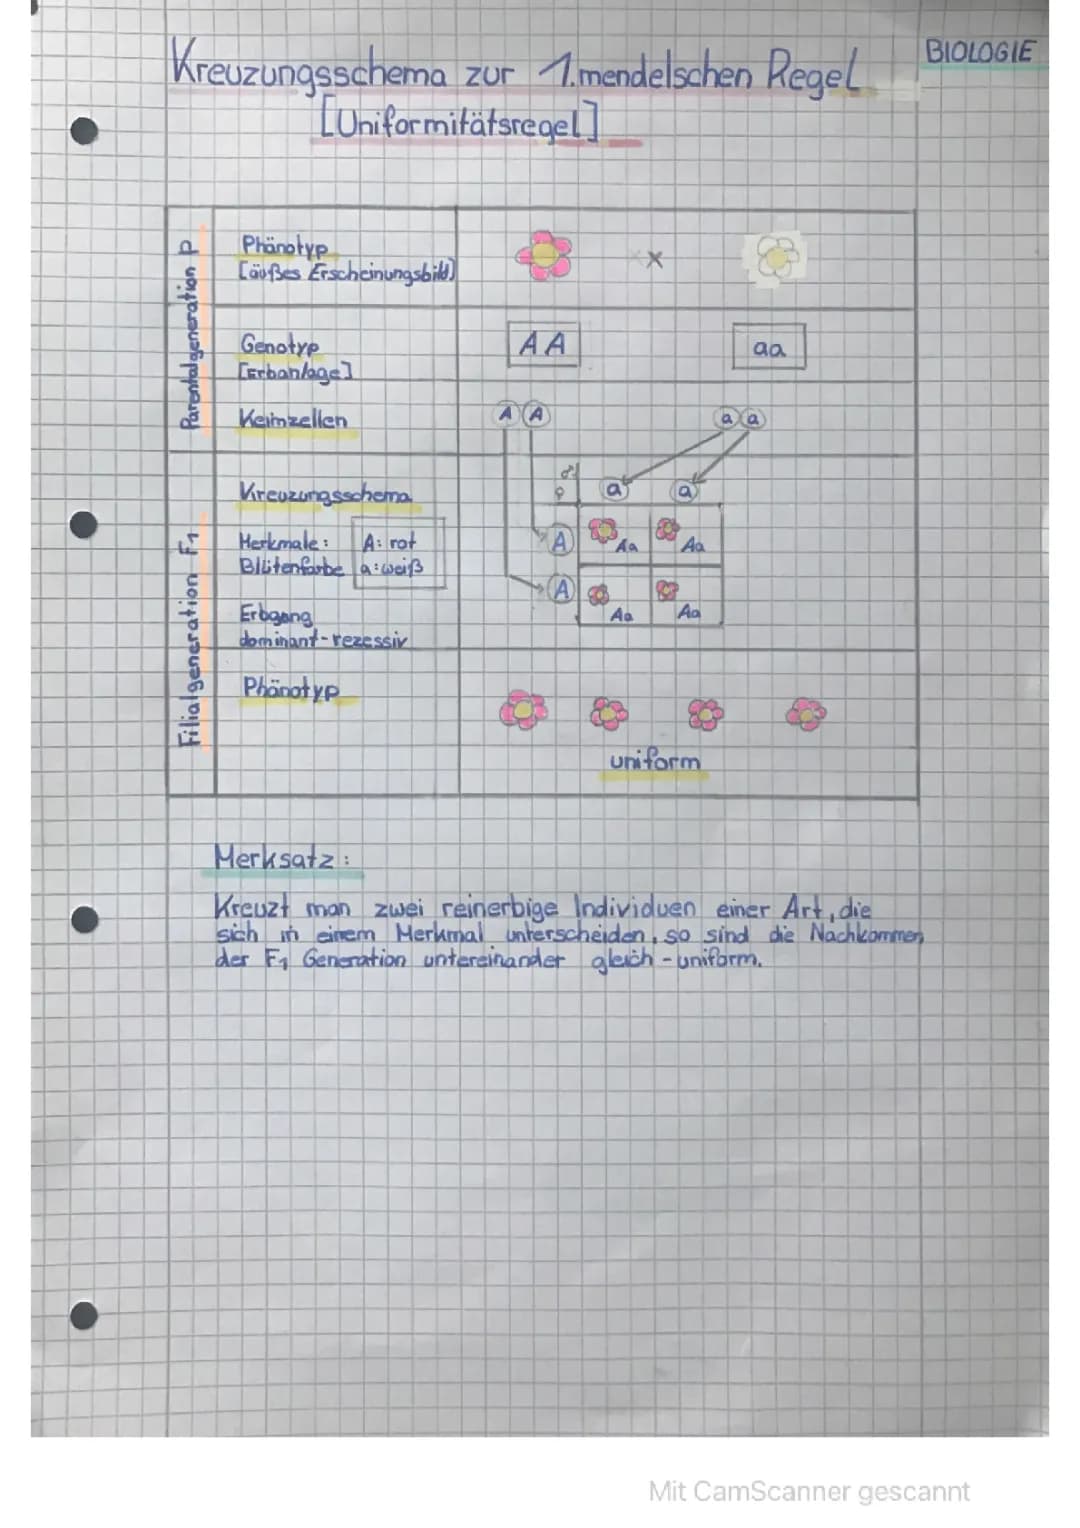 BIOLOGIE
Kreuzungsschema zur 1.mendelschen Regel
[Uniformitätsregel]
Parentalgeneration P
Phänotyp
[äußes Erscheinungsbild]
x
Genotyp
[Erbanlage]
AA
aa
Keimzellen
A A
a a
Filialgeneration F1
Kreuzungsschema
♂
♀
a
a
Merkmale:
Blütenfarbe
A: rot
a: weiß
A
Aa
Aa
A
Aa
Aa
Erbgang
dominant-rezessiv
Phänotyp
uniform
Merksatz:
Kreuzt man zwei reinerbige Individuen einer Art, die
sich in einem Merkmal unterscheiden, so sind die Nachkommen
der F1 Generation untereinander gleich - uniform.
Mit CamScanner gescannt